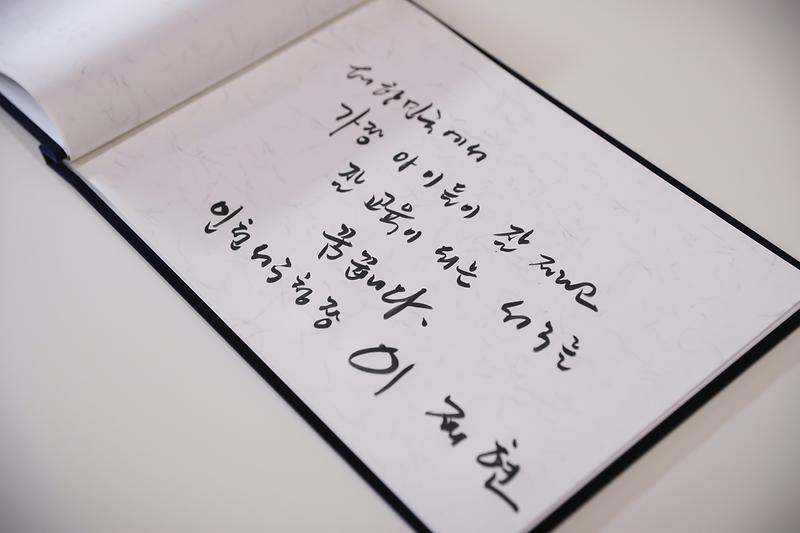 대한민국에서
가장 아이들이 잘 자라고
잘 교육이 되는 서구를
꿈꿉니다.
인천서구청장 이재현